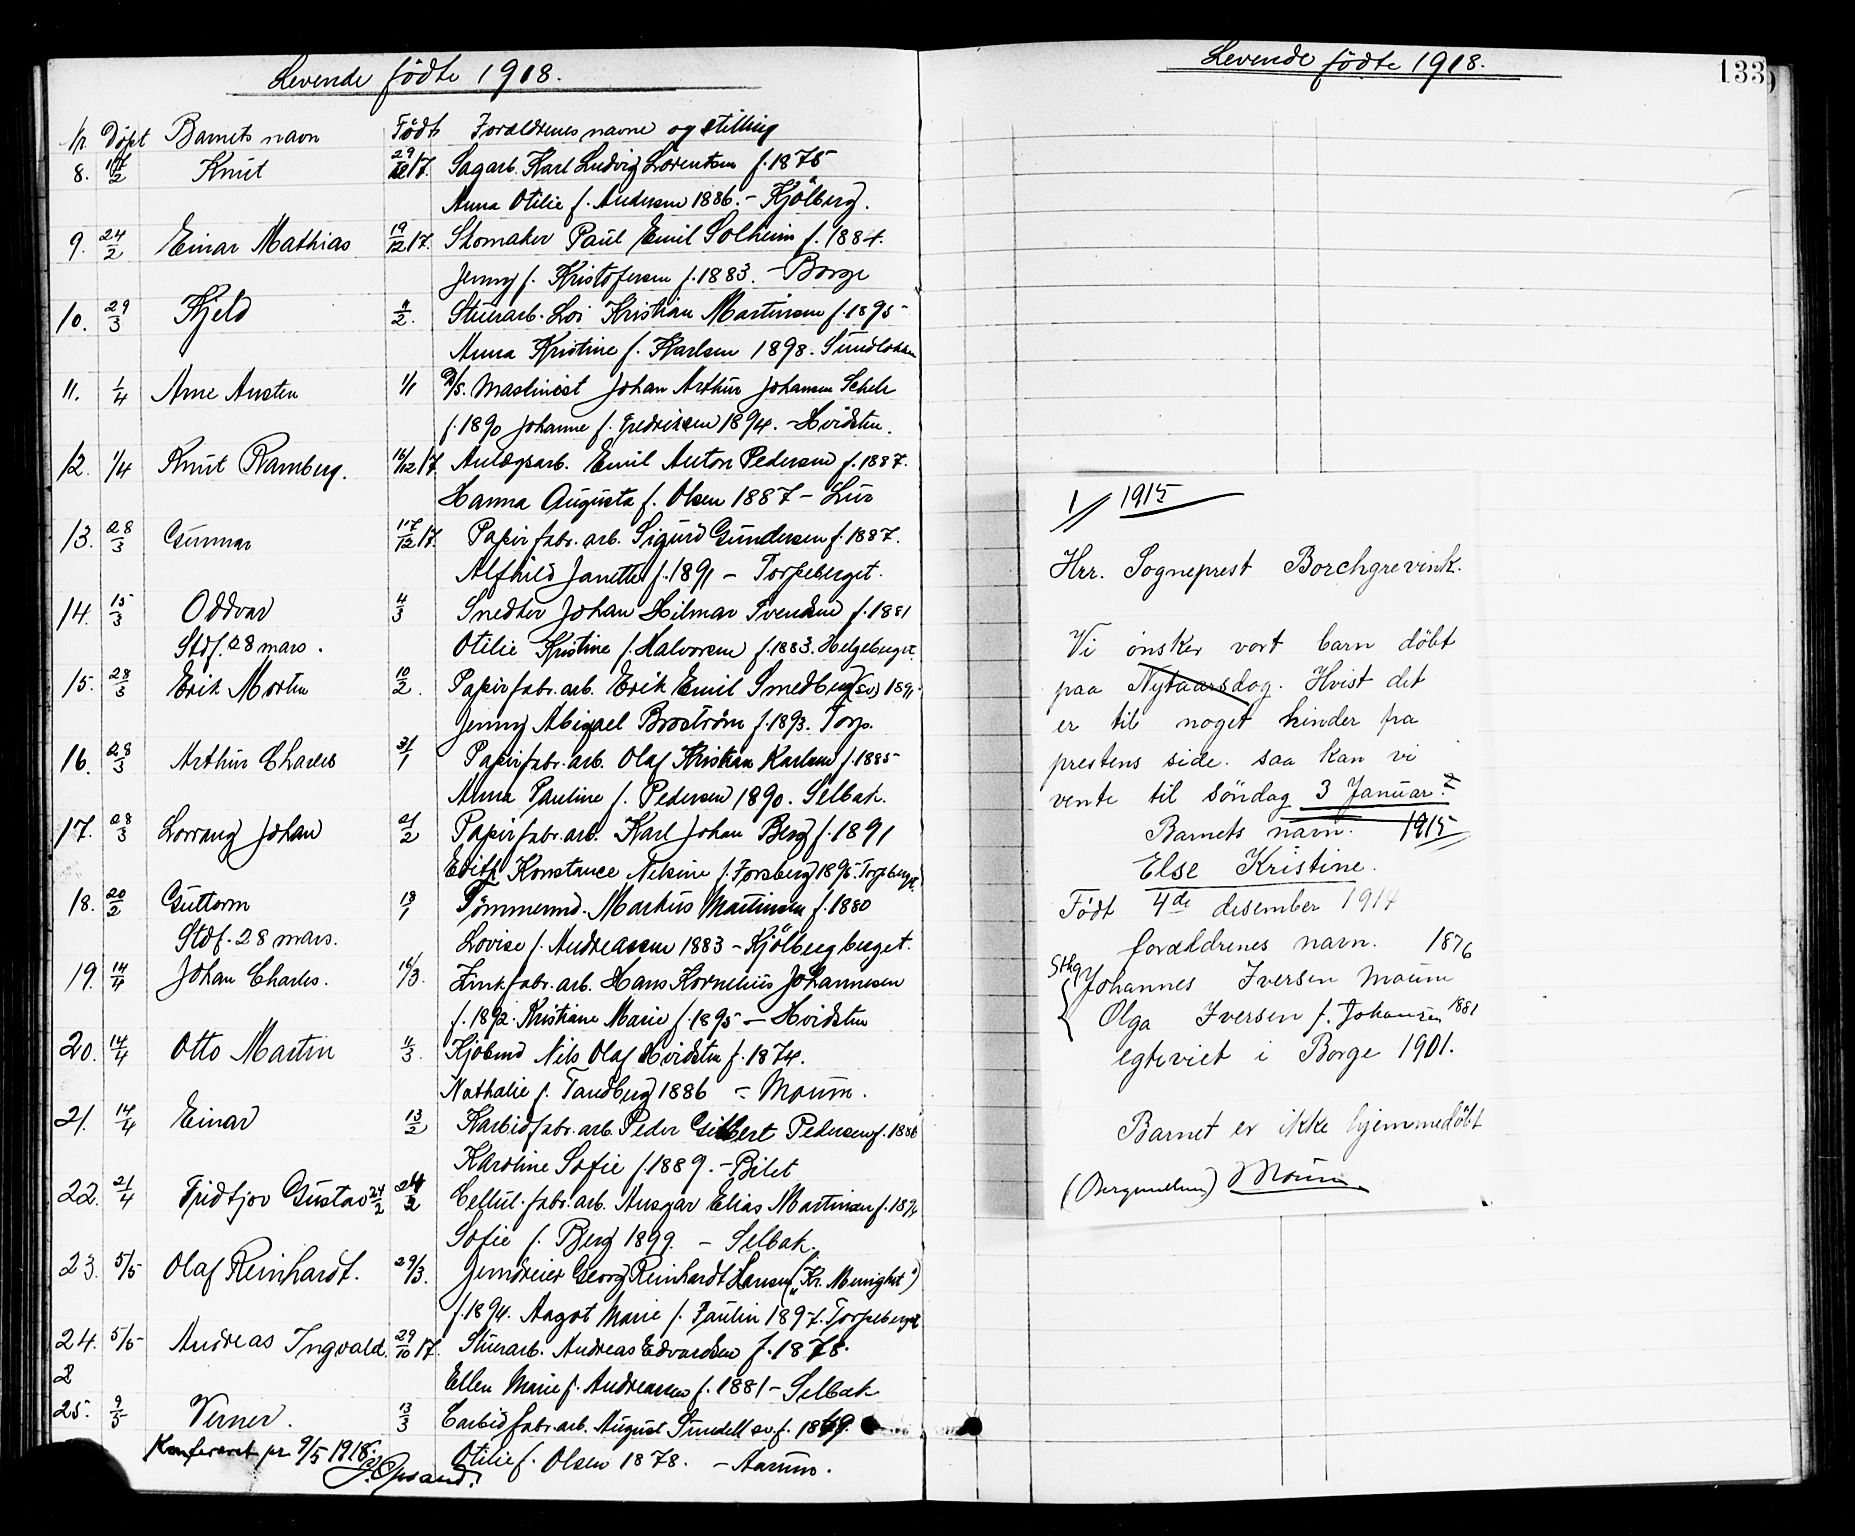 Levende fødte 1918.
Nr Døpt Barnets navn Født Forældrenes navne og stilling
8. 17/2 Knut 29/12 17. Sagarb. Karl Ludvig Lorentsen f. 1875
Anna Otilie f. Andersen 1886. - Kjölberg.
9. 24/2 Einar Mathias 19/12 17. Skomaker Paul Emil Solheim f. 1884.
Jenny f. Kristofersen f. 1883. - Borge
10. 29/3 Kjeld 4/2. Stuerarb. Loi Kristian Martinsen f. 1895
Anna Kristine f. Karlsen 1898. Sundløkken
11. 1/4 Arne Austen 1/1 D/S. Maskinist Johan Arthur Johansen
f. 1890 Johanne f. Fredriksen 1894. - Hvidsten.
12. 1/4 Knut Ramberg. 14/12 17. Anlægsarb. Emil Anton Pedersen f. 1887.
Hanna Augusta f. Olsen 1887 - Lur
13. 28/3 Gunnar 17/12 17. Papirfabr. arb. Sigurd Gundersen f. 1887.
Alfhild Janette f. 1891 - Torpeberget.
14. 15/3 Oddvar 4/3 Snedker Johan Hilmar Svendsen f. 1881
Stdf. 28 mars. Otilie Kristine f. Halvorsen f. 1883. Helgeberget.
15. 28/3 Erik Morten 10/2. Papirfabr. arb. Erik Emil Smedberg (sv) 1891
Jenny Abigael Broström f. 1893. Torp.
16. 28/3 Arthur Charles 31/1 Papirfabr. arb. Olaf Kristian Karlsen f. 1885
Anna Pauline f. Pedersen 1890. Selbak.
17. 28/3 Lorrang Johan 21/2 Papirfabr. arb. Karl Johan Berg f. 1891
Edith Konstance Nelsine f. Forsberg 1895. Torpeberget
18. 20/2 Guttorm 13/1 Tömmermd. Markus Martinsen f. 1880
Stdf. 28 mars. Lovise f. Andreassen 1883 - Kjölbergberget.
19. 14/4 Johan Charles. 16/3. Zinkfabr. arb. Hans Kornelius Johannesen
f. 1892. Kristiane Marie f. 1895 - Hvidsten
20. 14/4 Otto Martin 11/3. Kjöbmd Nils Olaf Hvidsten f. 1874.
Nathalie f. Tandberg 1886 - Moum.
21. 14/4 Einar 13/2 Karbidfabr. arb. Peder Gilbert Pedersen f. 1886
Karoline Sofie f. 1889. - Bilet
22. 21/4 Fridtjov Gustav 24/2 24/2 Cellul. fabr. arb. Ansgar Elias Martinsen f. 1894
Sofie f. Berg 1899. - Selbak.
23. 5/5 Olaf Reinhardt. 29/3. Jerndreier Georg Reinhardt Hansen ("Kr. Menighet")
f. 1894. Aagot Marie f. Paulin 1897. Torpeberget
24. 5/5 Andreas Ingvald 29/10 17. Stuerarb. Andreas Edvardsen f. 1878.
2 Ellen Marie f. Andreassen f. 1881 - Selbak
25. 9/5 Verner. 13/3 Carbidfabr. arb. August Sundell sv. f. 1869.
Otilie f. Olsen 1878. - Aarum.
Konfereret pr. 9/5 1918.
Levende fødte 1918.
133
1/1 1915
Hrr. Sogneprest Borchgrevink.
Vi ønsker vort barn döbt
paa Nytaarsdag. Hvist det
er til noget hinder fra
prestens side. saa kan vi
vente til söndag 3 Januar
Barnets navn. 1915
Else Kristine.
Født 4de desember 1914
foræældrenes navn. 1876
Johannes Iversen Moum
Olga Iversen f. Johansen 1881
egteviet i Borge 1901.
Barnet er ikke hjemmedöbt
Moum